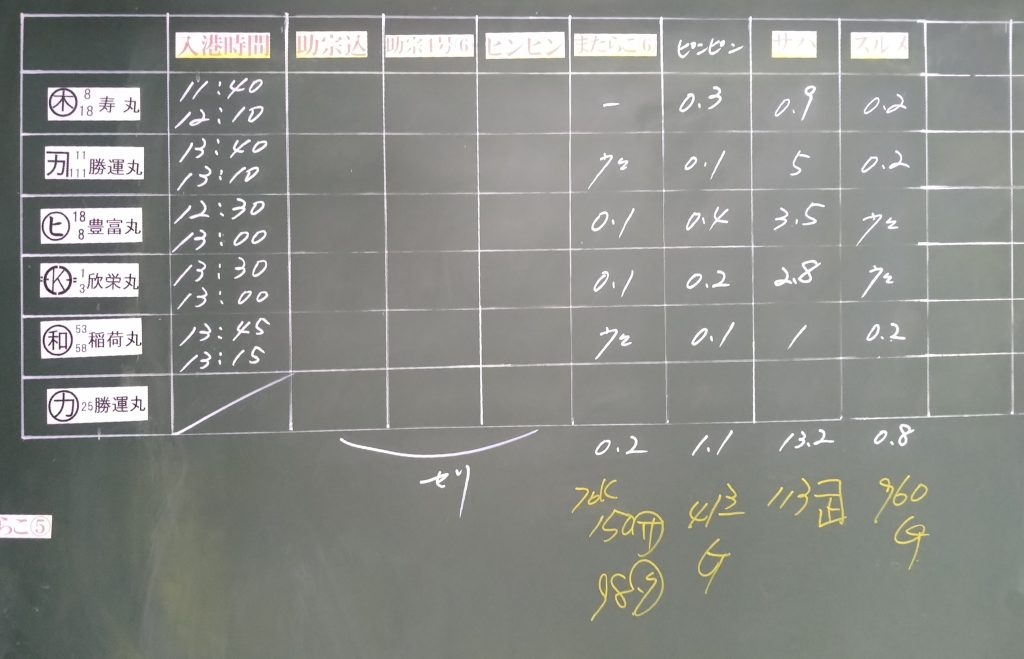 入港時間 助宗込 助宗1号6 ピンピン またらこ6 ピンピン サバ スルメ
木 8 18 寿丸 11:40 12:10 - 0.3 0.9 0.2
刀 11 111 勝運丸 13:40 13:10 0.1 5 0.2
ヒ 18 8 豊富丸 12:30 13:00 0.1 0.4 3.5
K 1 3 欣栄丸 13:30 13:00 0.1 0.2 2.8
和 53 58 稲荷丸 13:45 13:15 0.1 1 0.2
カ 25 勝運丸
0.2 1.1 13.2 0.8
セリ
らこ⑤
150 413 113 960
98